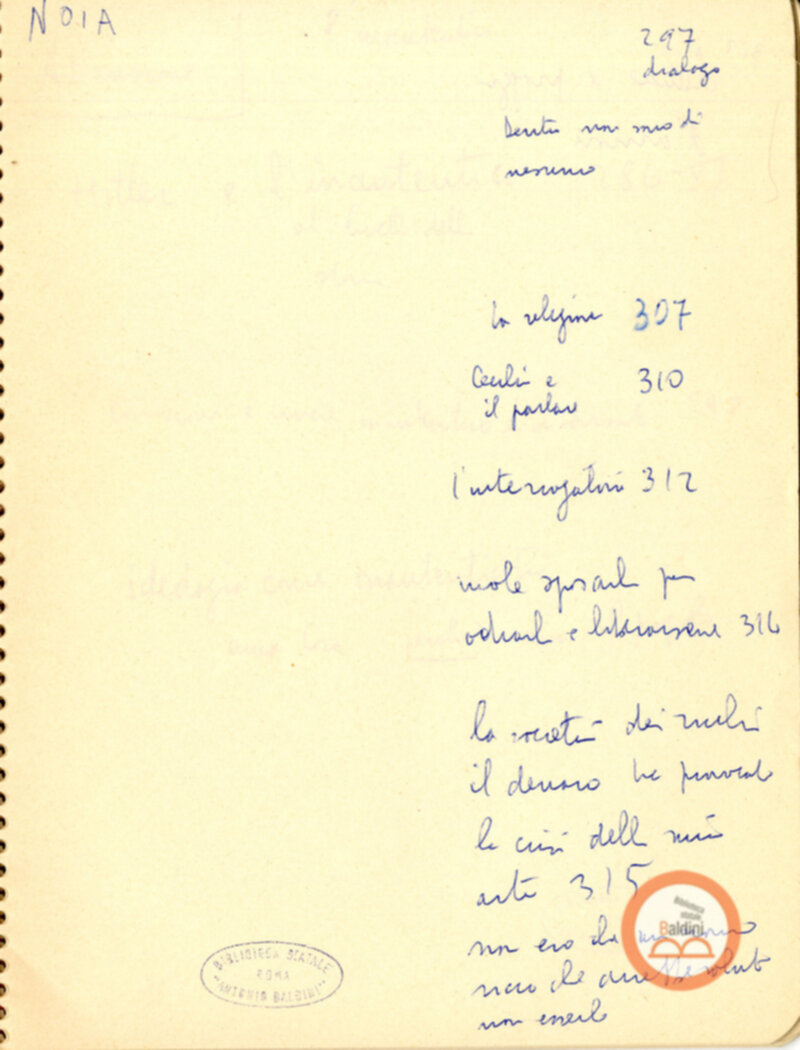 NOIA
297
dialogo
Dentro non sono di
nessuno
la religione 307
Cecilia e 310
il parlare
l'interrogatorio 312
vuole sposarla per
odiarla e liberarsene 314
la società dei ricchi
il denaro ha provocato
la crisi della mia
arte 315
non ero che un uomo
ricco che avrebbe voluto
non esserlo
BIBLIOTECA STATALE
ROMA
"ANTONIO BALDINI"
Biblioteca
statale
Baldini